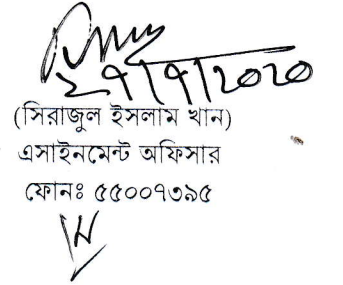 ২৭/৭/২০২০
(সিরাজুল ইসলাম খান)
এসাইনমেন্ট অফিসার
ফোনঃ ৫৫০০৭৩৯৫